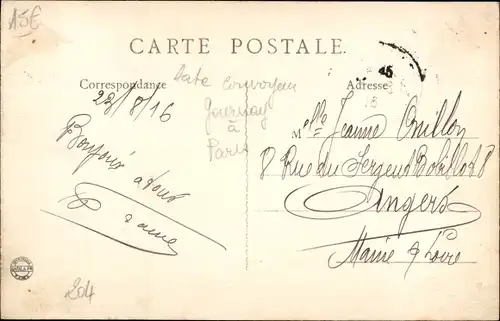 15€
CARTE POSTALE.
Correspondance
Adresse
Date convoyeur
Gournay
à
Paris
23/8/16
Bonjour à tous
Mlle Jeanne
8 Rue du Sergent Bobillot 8
Angers
Maine & Loire
204